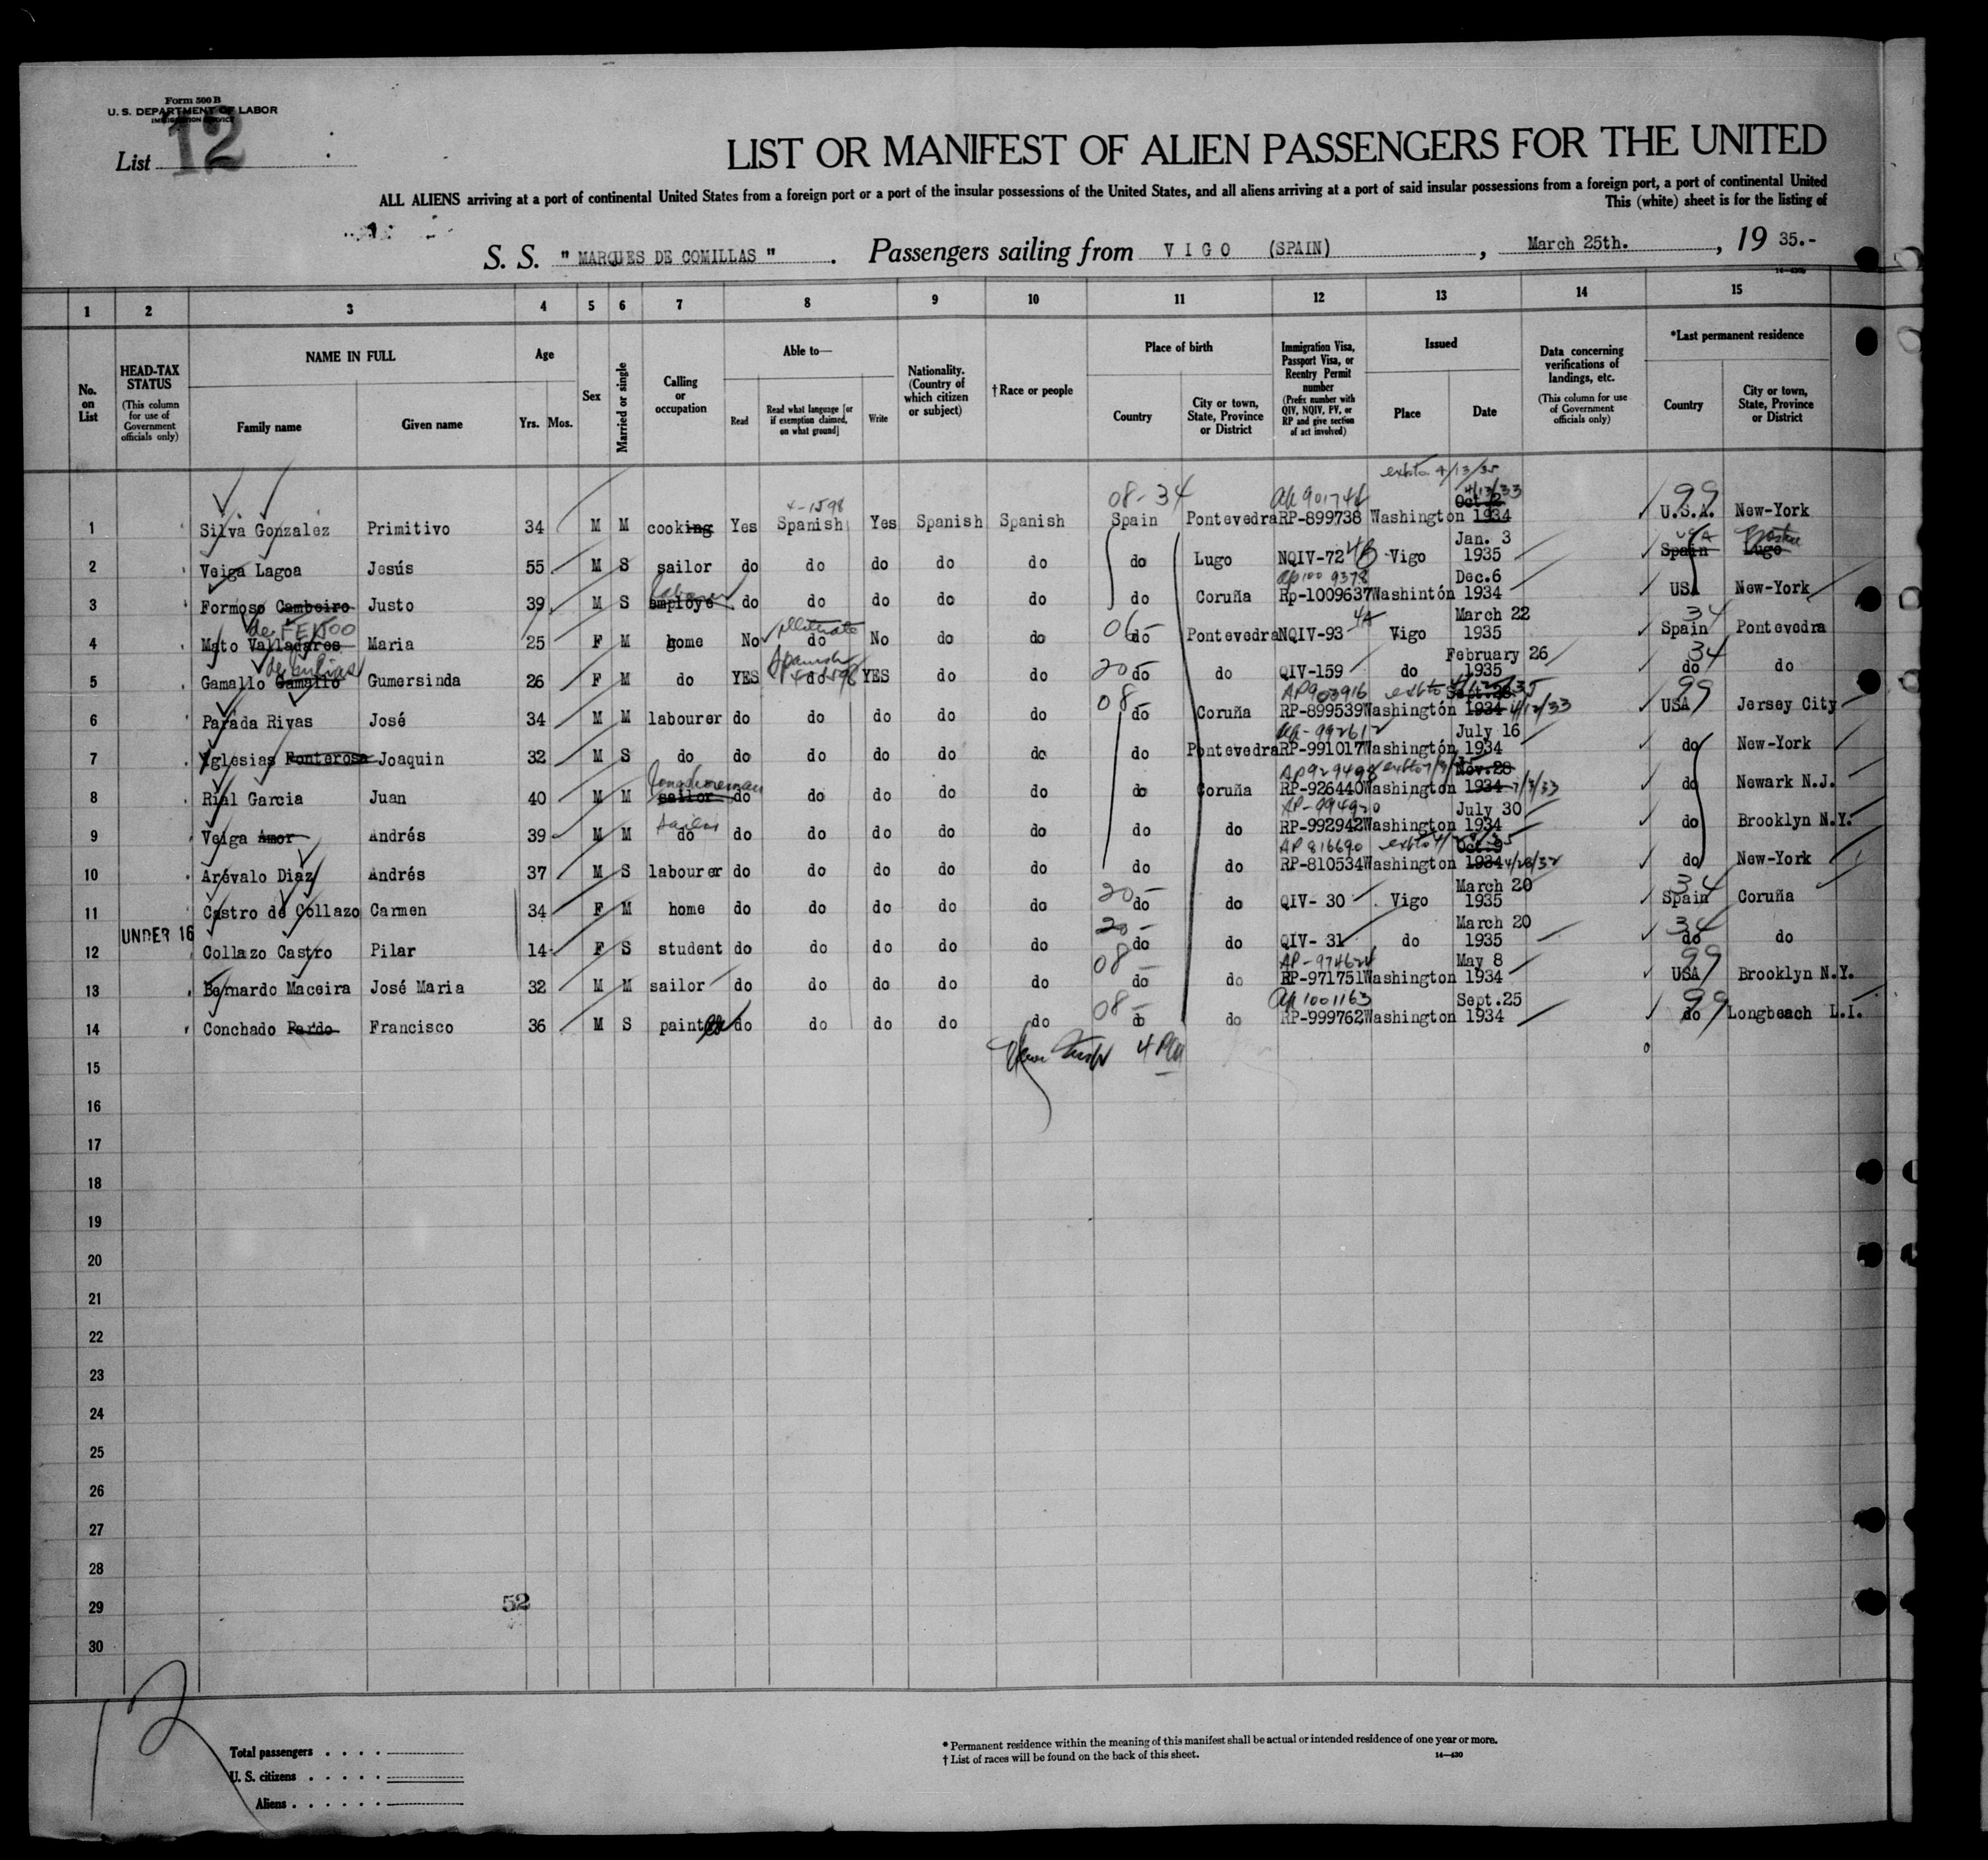 Form 500 B
U. S. DEPARTMENT OF LABOR
IMMIGRATION SERVICE
List 12
LIST OR MANIFEST OF ALIEN PASSENGERS FOR THE UNITED
ALL ALIENS arriving at a port of continental United States from a foreign port or a port of the insular possessions of the United States, and all aliens arriving at a port of said insular possessions from a foreign port, a port of continental United
This (white) sheet is for the listing of
S. S. " MARQUES DE COMILLAS " . Passengers sailing from V I G O (SPAIN) , March 25th. , 19 35.-
1 2 3 4 5 6 7 8 9 10 11 12 13 14 15
No. on List
HEAD-TAX STATUS (This column for use of Government officials only)
NAME IN FULL Family name Given name
Age Yrs. Mos.
Sex
Married or single
Calling or occupation
Able to— Read Read what language [or if exemption claimed, on what ground] Write
Nationality. (Country of which citizen or subject)
† Race or people
Place of birth Country City or town, State, Province or District
Immigration Visa, Passport Visa, or Reentry Permit number (Prefix number with QIV, NQIV, PV, or RP and give section of act involved)
Issued Place Date
Data concerning verifications of landings, etc. (This column for use of Government officials only)
*Last permanent residence Country City or town, State, Province or District
exbto 4/13/35
4-1598 08-34 4/13/33 99
Oct.2
1 Silva Gonzalez Primitivo 34 M M cooking Yes Spanish Yes Spanish Spanish Spain Pontevedra RP-899738 Washington 1934 U.S.A. New-York
Jan. 3 USA
2 Veiga Lagoa Jesús 55 M S sailor do do do do do do Lugo NQIV-72 4B Vigo 1935 Spain Lugo
laborer ap 1009378 Dec.6
3 Formoso Cambeiro Justo 39 M S employe do do do do do do Coruña Rp-1009637 Washintón 1934 USA New-York
de FEIJOO illiterate 06- 4A March 22 34
4 Mato Valladares Maria 25 F M home No do No do do do Pontevedra NQIV-93 Vigo 1935 Spain Pontevedra
Spanish 20- February 26 34
5 Gamallo Gamallo Gumersinda 26 F M do YES do YES do do do do QIV-159 do 1935 do do
08 AP903916 exbto Sept.28 99
6 Parada Rivas José 34 M M labourer do do do do do do Coruña RP-899539 Washingtón 1934 4/12/33 USA Jersey City
ap-992612 July 16
7 Yglesias Ponterosa Joaquin 32 M S do do do do do do do Pontevedra RP-991017 Washingtón 1934 do New-York
longshoreman AP929498 exbto 7/3/35 Nov.28
8 Rial Garcia Juan 40 M M sailor do do do do do do Coruña RP-926440 Washington 1934 7/3/33 do Newark N.J.
sailor AP-994920 July 30
9 Veiga Amor Andrés 39 M M do do do do do do do do RP-992942 Washington 1934 do Brooklyn N.Y.
AP 816690 exbto Oct.9
10 Arévalo Diaz Andrés 37 M S labourer do do do do do do do RP-810534 Washington 1934 do New-York
20- March 20 34
11 Castro de Collazo Carmen 34 F M home do do do do do do do QIV- 30 Vigo 1935 Spain Coruña
UNDER 16 20- March 20 34
12 Collazo Castro Pilar 14 F S student do do do do do do do QIV- 31 do 1935 do do
08- AP-974624 May 8 99
13 Bernardo Maceira José Maria 32 M M sailor do do do do do do do RP-971751 Washington 1934 USA Brooklyn N.Y.
08- ap 1001163 Sept.25 99
14 Conchado Pardo Francisco 36 M S painter do do do do do do do RP-999762 Washington 1934 do Longbeach L.I.
4 PM
15
16
17
18
19
20
21
22
23
24
25
26
27
28
29
52
30
12
Total passengers . . . .
U. S. citizens . . . . .
Aliens . . . . . .
* Permanent residence within the meaning of this manifest shall be actual or intended residence of one year or more.
† List of races will be found on the back of this sheet.
14—430